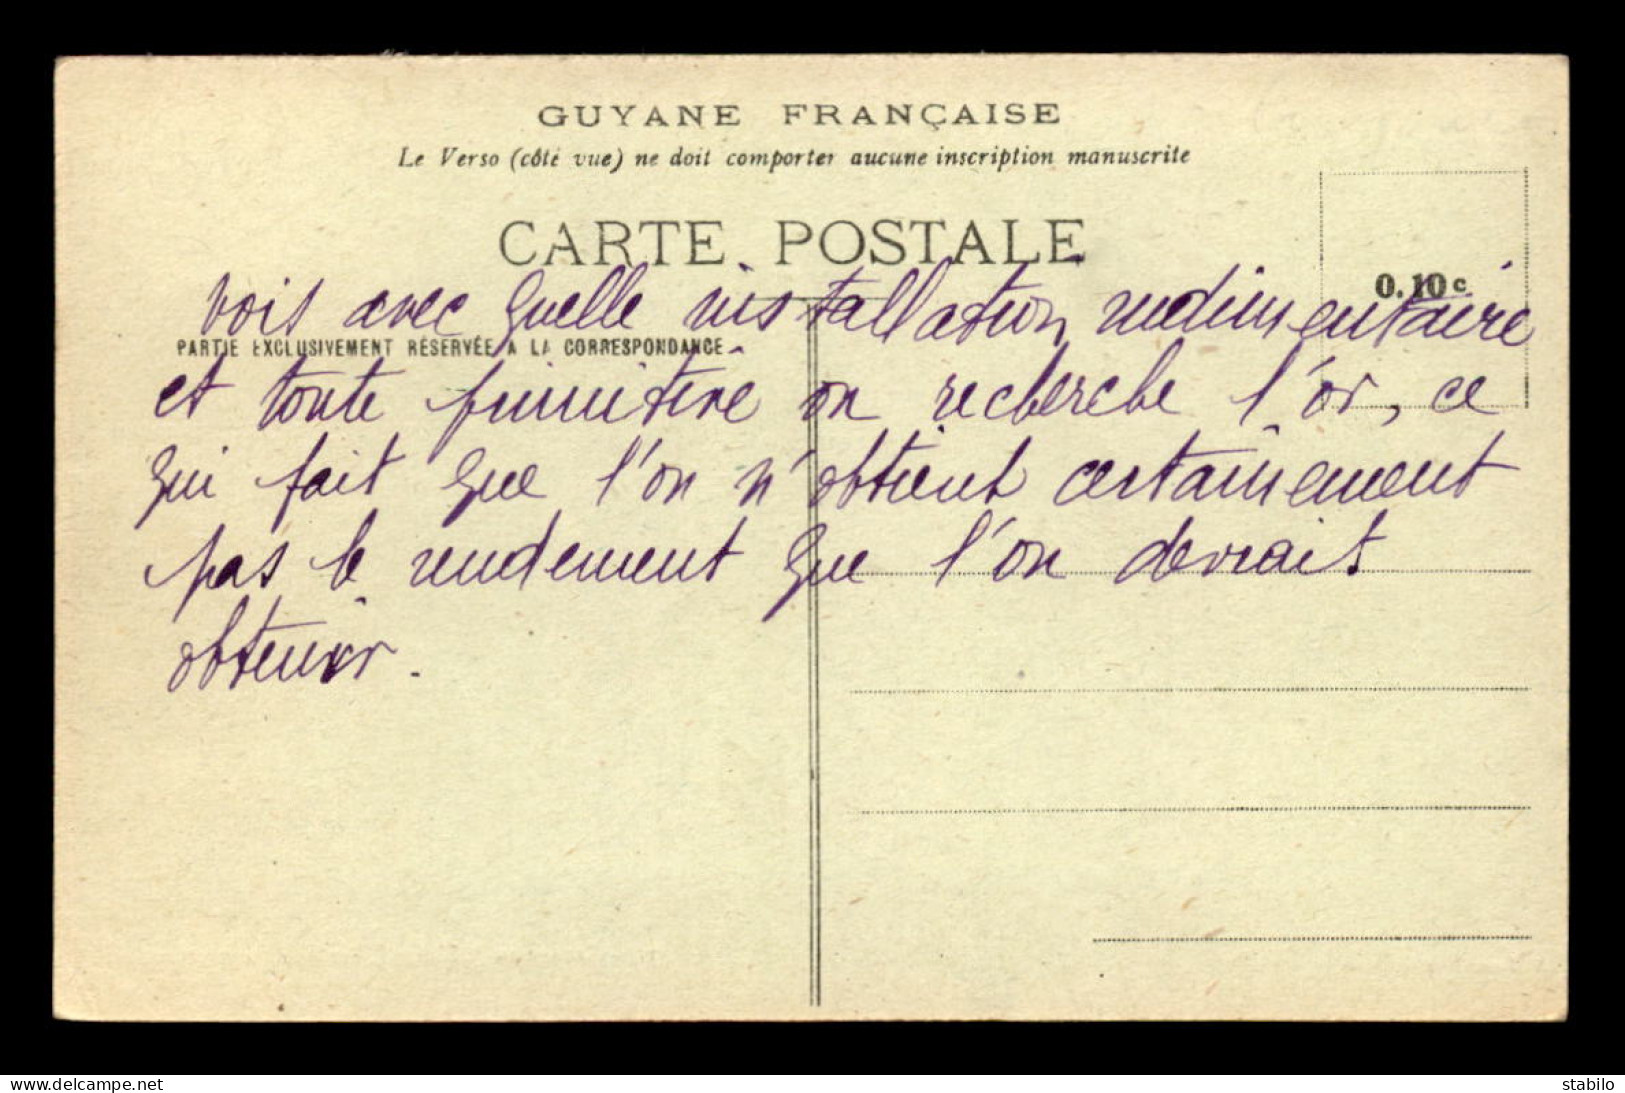 GUYANE FRANÇAISE
Le Verso (côté vue) ne doit comporter aucune inscription manuscrite
CARTE POSTALE
0.10 c
vois avec quelle installation rudimentaire
PARTIE EXCLUSIVEMENT RÉSERVÉE A LA CORRESPONDANCE
et toute primitive on recherche l'or, ce
qui fait que l'on n'obtient certainement
pas le rendement que l'on devrait
obtenir.
www.delcampe.net
stabilo